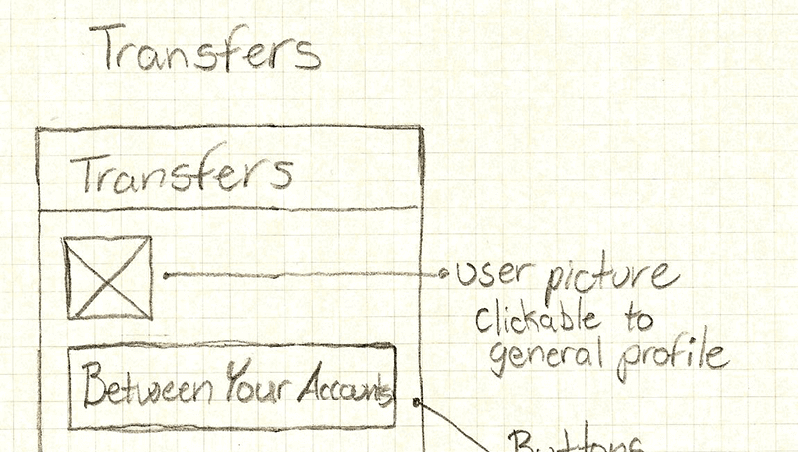 Transfers
Transfers
user picture
clickable to
general profile
Between Your Accounts
Buttons